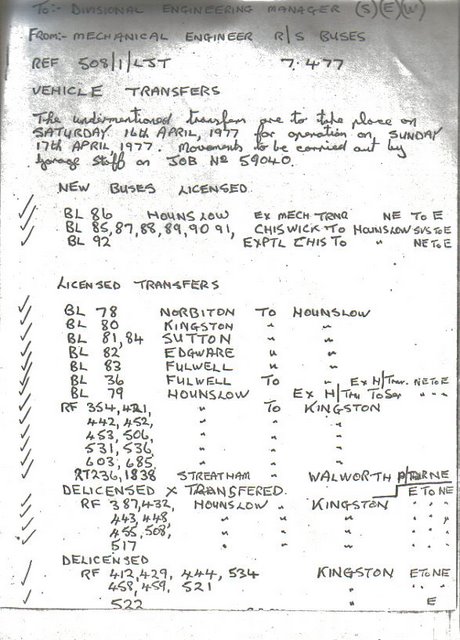 To:- DIVISIONAL ENGINEERING MANAGER (S)(E)(W)
FROM:- MECHANICAL ENGINEER R/S BUSES
REF 508/1/LJT 7.4.77
VEHICLE TRANSFERS
The undermentioned transfers are to take place on
SATURDAY 16th APRIL, 1977 for operation on SUNDAY
17th APRIL, 1977. Movements to be carried out by
garage staff on JOB No 59040.
NEW BUSES LICENSED
BL 86 HOUNSLOW EX MECH TRNR NE TO E
BL 85,87,88,89,90 91, CHISWICK TO HOUNSLOW SVS TO E
BL 92 EXPTL CHIS TO " NE TO E
LICENSED TRANSFERS
BL 78 NORBITON TO HOUNSLOW
BL 80 KINGSTON " "
BL 81,84 SUTTON " "
BL 82 EDGWARE " "
BL 83 FULWELL " "
BL 36 FULWELL TO " Ex H/Tnr. NE TO E
BL 79 HOUNSLOW Ex H/Tnr To " " "
RF 354,421, " TO KINGSTON
442,452, " " "
453,506, " " "
531,536 " " "
603,685 " " "
RT 236,1838 STREATHAM " WALWORTH P/TNR NE
DELICENSED X TRANSFERED E TO NE
RF 387,432, HOUNSLOW " KINGSTON " " "
443,448 " " " " " "
455,508, " " " " " "
517 " " " " " "
DELICENSED
RF 412,429, 444, 534 KINGSTON E TO NE
458, 459, 521 " " "
522 " E